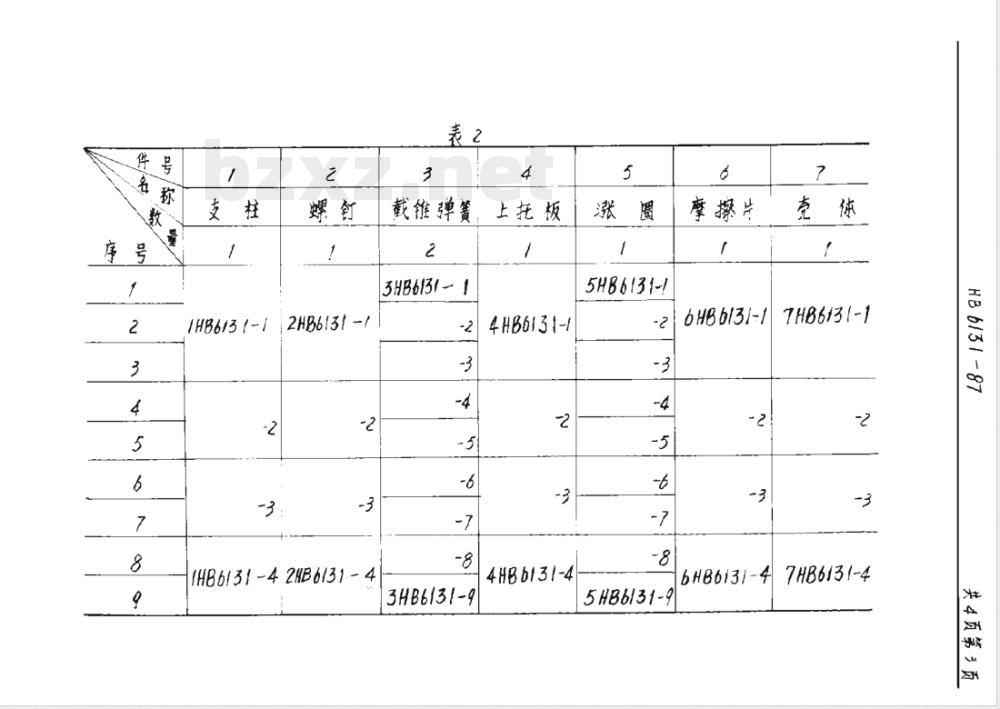 表 2
件 号 1 2 3 4 5 6 7
名 称 支 柱 螺 钉 截锥弹簧 上托板 涨 圈 摩擦片 壳 体
数 量 1 1 2 1 1 1 1
序 号
1 1HB6131-1 2HB6131-1 3HB6131-1 4HB6131-1 5HB6131-1 6HB6131-1 7HB6131-1
2 -2 -2
3 -3 -3
4 -2 -2 -4 -2 -4 -2 -2
5 -5 -5
6 -3 -3 -6 -3 -6 -3 -3
7 -7 -7
8 1HB6131-4 2HB6131-4 -8 4HB6131-4 -8 6HB6131-4 7HB6131-4
9 3HB6131-9 5HB6131-9
HB 6131-87
共 4 页 第 3 页
bzxz.net